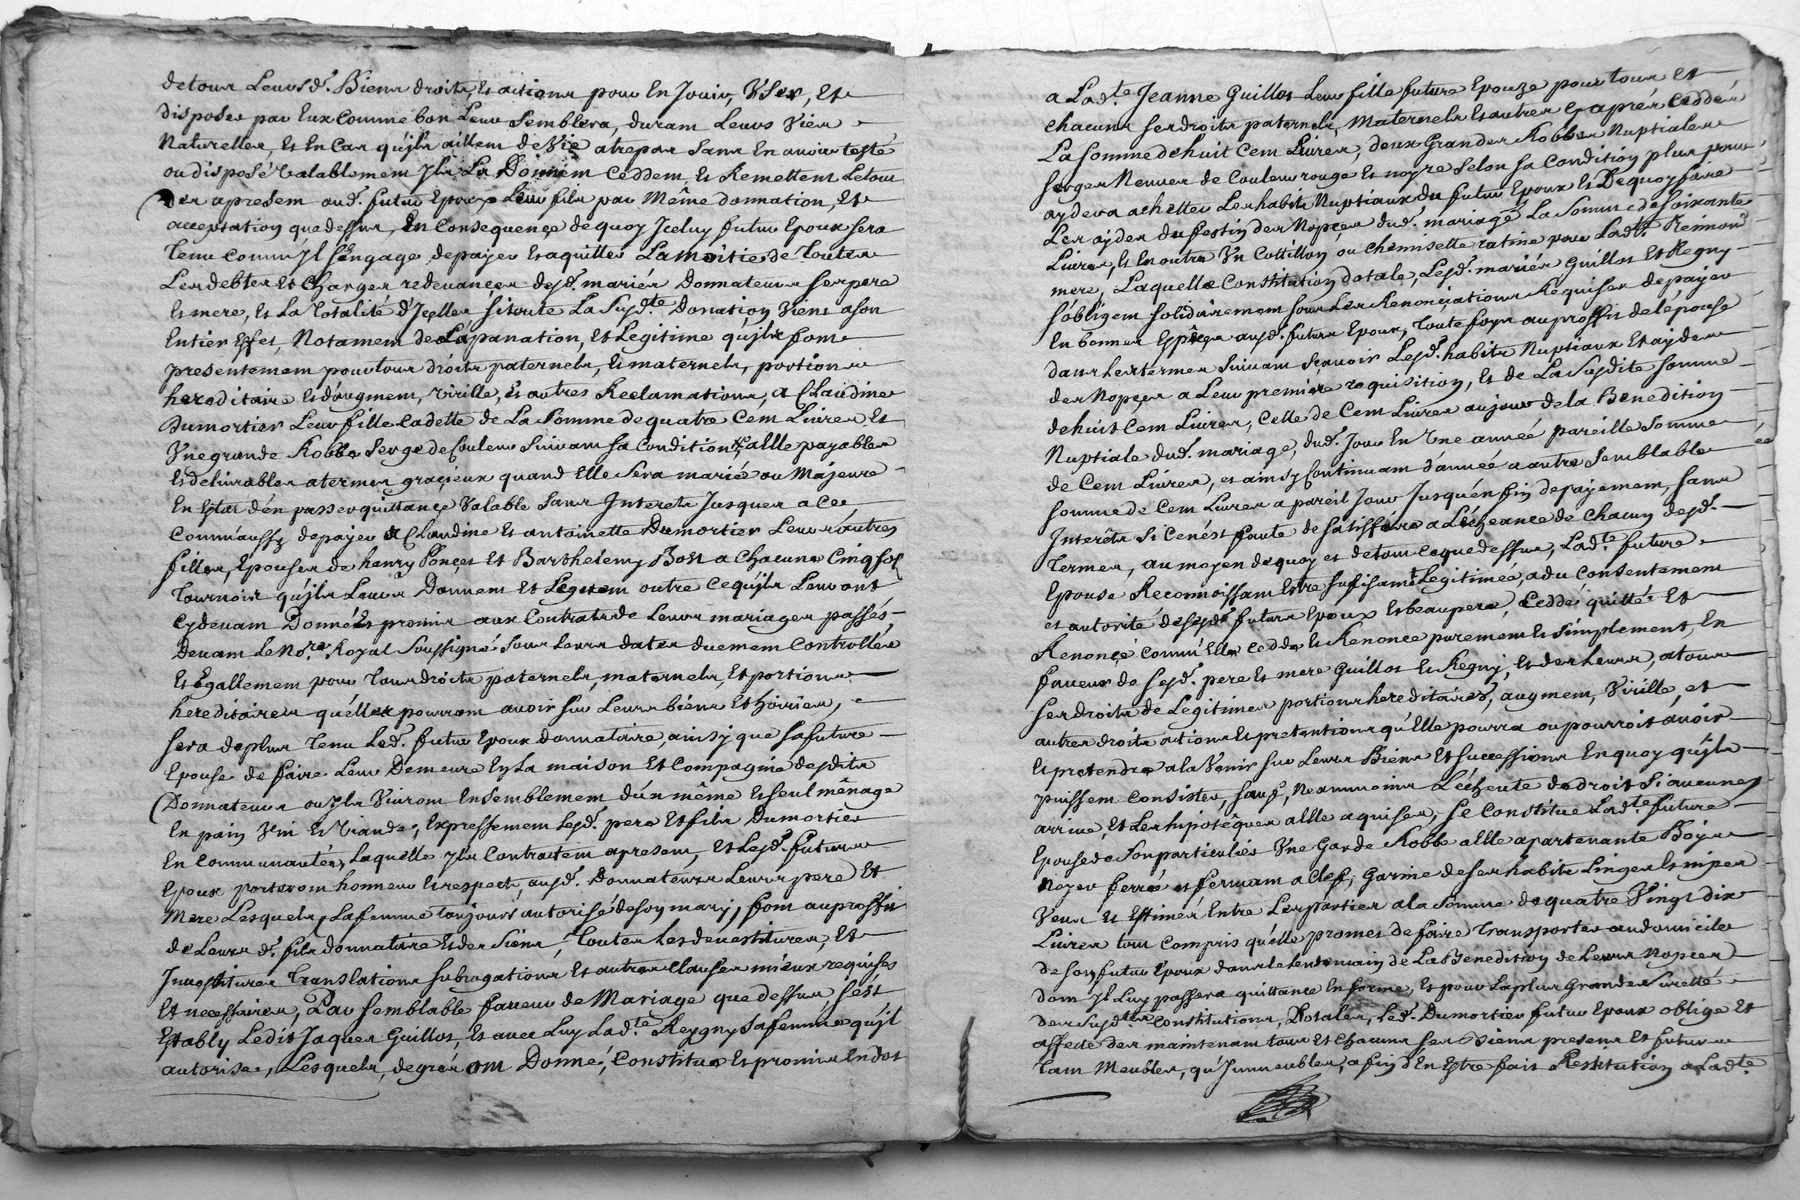 de tous Leursd. Biens droits Et actions pour En Jouir, Vser, Et
disposer par Eux Comme bon Leur Semblera, durant Leurs Vies
Naturelles, Et En Cas qu'jls aillent de Vie a trepas Sans En avoir testé
ou disposé Valablement Jls La Donnent Ceddent Et Remettent Le tout
des apresent aud. futur Epoux Leur fils par Même donnation, Et
acceptation que dessus, En Consequençe de quoy Jceluy futur Epoux sera
Tenu Comm'Jl s'Engage de payer Et aquitter La Moitié de Toutes
Les debtes Et Charges redevançes desd. mariés Donnateurs ses pere
Et mere, Et La Totalité d'Jçelles si toute La Susd.te Donation Vient a son
Entier Effet, Notament de La panation, Et Legitime qu'jls font
presentement pour tous droits paternels, Et maternels, portions
hereditaires Et d'augment, Virille, Et autres Reclamations, a Claudine
Dumortier Leur fille Cadette de La Somme de quatre Cent Livres, Et
Vne grande Robbe Serge de Couleur Suivant sa Condition, Le tout a Elle payables
Et delivrables a termes graçieux quand Elle Sera mariée ou Majeure
En Etat d'en passer quittançe Valable Sans Interets Jusques a Ce,
Comm'aussy de payer a Claudine Et antoinette Dumortier Leurs autres
filles, Epouses de henry Ponçet Et Barthelemy Bost a Chacune Cinq sols
Tournois qu'jls Leurs Donnent Et Leguent outre Ce qu'jls Leur ont
Cydevant Donné Et promis aux Contrats de Leurs mariages passés
Devant Le No.re Royal Soussigné Sous Leurs dates duement Controllés
Et Egallement pour Tous droits paternels, maternels, Et portions
hereditaires qu'elles pourront avoir sur Leurs biens Et hoiries,
sera de plus Tenu Led. futur Epoux donnataire, ainsy que sa future
Epouse de faire Leur Demeure En La maison Et Compagnie desdits
Donnateurs ou Jls Vivront Ensemblement d'un même Et seul mênage
En pain Vin Et Viande, Expressement Lesd. pere Et fils Dumortier
En Communauté, Laquelle Jls Contractent apresent, Et Lesd. futurs
Epoux porteront honneur Et respect, ausd. Donnateurs Leurs pere Et
Mere Lesquels, La femme Toujours autorisé de son mary, font au proffit
de Leurs d. fils donnataire Et des Siens, Toutes Les devestitures, Et
Jnvestitures Translations subrogations Et autres Clauses mieux requises
Et necessaires, Par semblable faveur de Mariage que dessus s'est
Etably Ledit Jaques Guillot, Et avec Luy Lad.te Reygny sa femme qu'jl
autorise, Lesquels, de gré ont Donné, Constitué Et promis En dot
a Lad.te Jeanne Guillot Leur fille future Epouze pour tous Et
chacuns ses droits paternels, Maternels Et autres Cy apres Ceddés
La Somme de huit Cent Livres, deux Grandes Robbes Nuptiales
serges Neuves de Couleur rouge Et noyre Selon sa Condition plus pour
ayder a achetter Les habits Nuptiaux du futur Epoux Et De quoy faire
Les ayder du festin des Nopçes dud. mariage La Somme de soixante
Livres, Et En outre Vn Cottillon ou Chemisette ratine pour Lad.te Reimond
mere, Laquelle Constitution dotale, Lesd. mariés Guillot Et Regny
s'obligent solidairement sous Les Renonçiations Requises de payer
En bonnes Espêçes ausd. futurs Epoux, Toutefoys au proffit de l'épouse
dans Les termes Suivant Scavoir Lesd. habits Nuptiaux Et aydes
des Nopçes a Leur premiere requisition, Et de La Susdite Somme
de huit Cent Livres, Celle de Cent Livres au jour de la Benediction
Nuptiale dud. mariage, dud. Jour En Vne année pareille Somme
de Cent Livres, Et ainsy Continuant d'année a autre Semblable
Somme de Cent Livres a pareil Jour Jusqu'en fin de payement, sans
Interêts Si Ce n'ést faute de satisfaire a L'écheance de Chacun desd.
Termes, au moyen de quoy et de tout Ceque dessus, Lad.te future
Epouse Reconnoissant Estre suffisament Legitimée, a du Consentement
et autorité desesd. futur Epoux Et beaupere, Ceddé quitté Et
Renonçé Comm'Elle Cedde Et Renonce purement Et Simplement, En
faveur de sesd. pere Et mere Guillot Et Regny, Et des Leurs, a tous
ses droits de Legitimes portions hereditaires, augment, Virille, et
autres droits actions Et pretentions qu'Elle pourra ou pourroit avoir
Et pretendre a La Venir sur Leurs Biens Et Successions En quoy qu'jls
puissent Consister, Sauf, Neantmoins L'écheute de droit Si aucune
arrive, Et Les hipotêques a Elle aquises, se Constitue Lad.te future
Epouse de Son particulier Vne Garde Robbe a Elle apartenante Bois
Noyer ferrée et fermant a Clef, Garnie de ses habits Linges Et nipes
Veus Et Estimés Entre Les parties a la Somme de quatre Vingt dix
Livres tout Compris qu'elle promet de faire Transporter au domicile
de son futur Epoux dans Le Lendemain de La Benediction de Leurs Nopces
dont Jl Luy passera quittance En forme, Et pour La plus Grande Suretté
des Susd.tes Constitutions, Dotales, Led. Dumortier futur Epoux oblige Et
affecte des maintenant tous Et Chacuns ses Biens presens Et futurs
Tant Meubles, qu'Jmmeubles, a fin d'En Estre fait Restitution a Lad.te